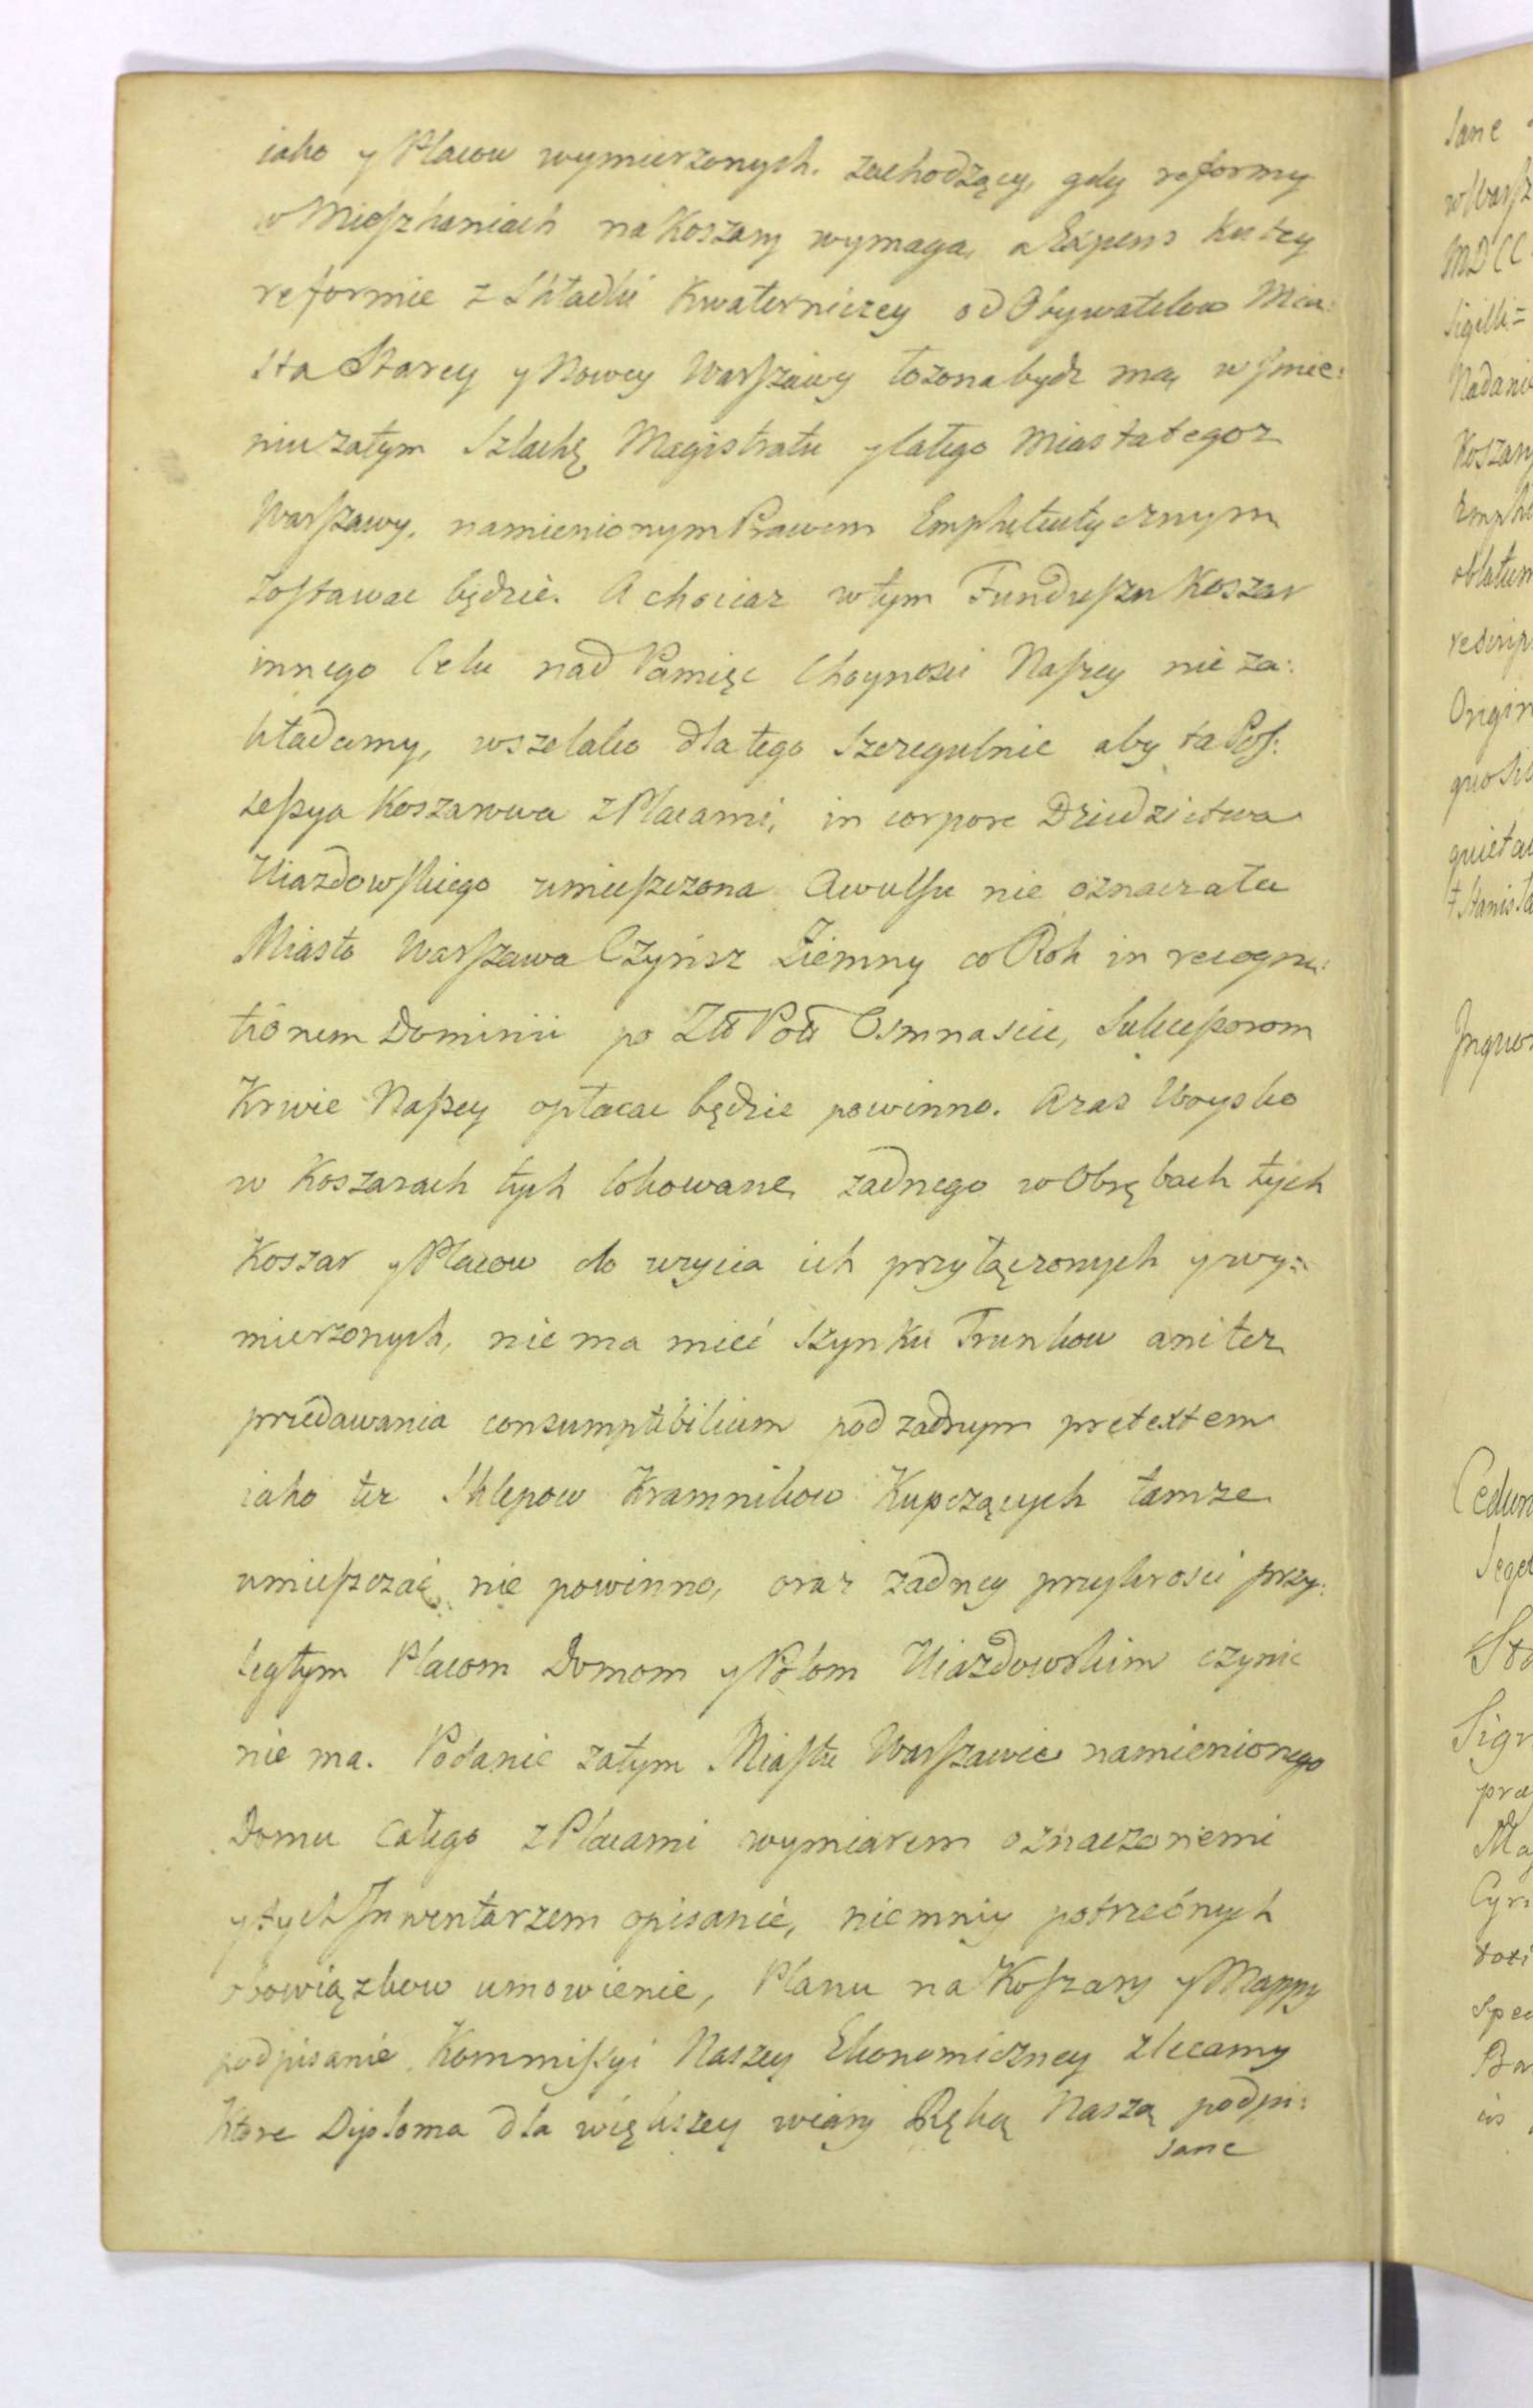 iako y Placow wymierzonych. zachodzący, gdy reformy
w Mieszkaniach na Koszary wymaga, a Expens ku tey
reformie z Składki Kwaterniczey od Obywatelow Mia:
sta Starey y Nowey Warszawy łozona bydz ma, w Jmie:
niu zatym Szlachę Magistratu y całego Miasta tegoz
Warszawy, namienionym Prawem Emphiteutycznym
zostawac będzie. A chociaz w tym Funduszu Koszar
innego Celu nad Pamięc Choynosci Naszey nie za:
kładamy, wszelako dla tego Szeregulnie aby ta Pos:
sessya Koszarowa z Placami, in corpore Dziedzictwa
Uiazdowskiego umieszczona Awulsu nie oznaczała
Miasto Warszawa Czynsz Ziemny co Rok in recogni:
tionem Dominii po Złł Poll Osmnascie, Sukcessorom
Krwie Naszey opłacac będzie powinno. A zas Woysko
w Koszarach tych lokowane, zadnego w Obrębach tych
Koszar y Placow do uzycia ich przyłączonych y wy:
mierzonych, nie ma mieć Szynku Trunkow ani tez
przedawania consumptibilium pod zadnym pretextem
iako tez Sklepow Kramnikow Kupczących tamze
umieszczać nie powinno, oraz zadney przykrosci przy:
ległym Placom Domom y Polom Uiazdowskim czynic
nie ma. Podanie zatym Miastu Warszawie namienionego
Domu całego z Placami wymiarem oznaczonemi
y tych Jnwentarzem opisanie, niemniy potrzebnych
obowiązkow umowienie, Planu na Koszary y Mappy
podpisanie Kommissyi Naszey Ekonomiczney zlecamy
Ktore Diploma dla większey wiary Ręką Naszą podpi:
sane
Sane
MDCC
Sigilli=
Koszary
oblatum
Sigr